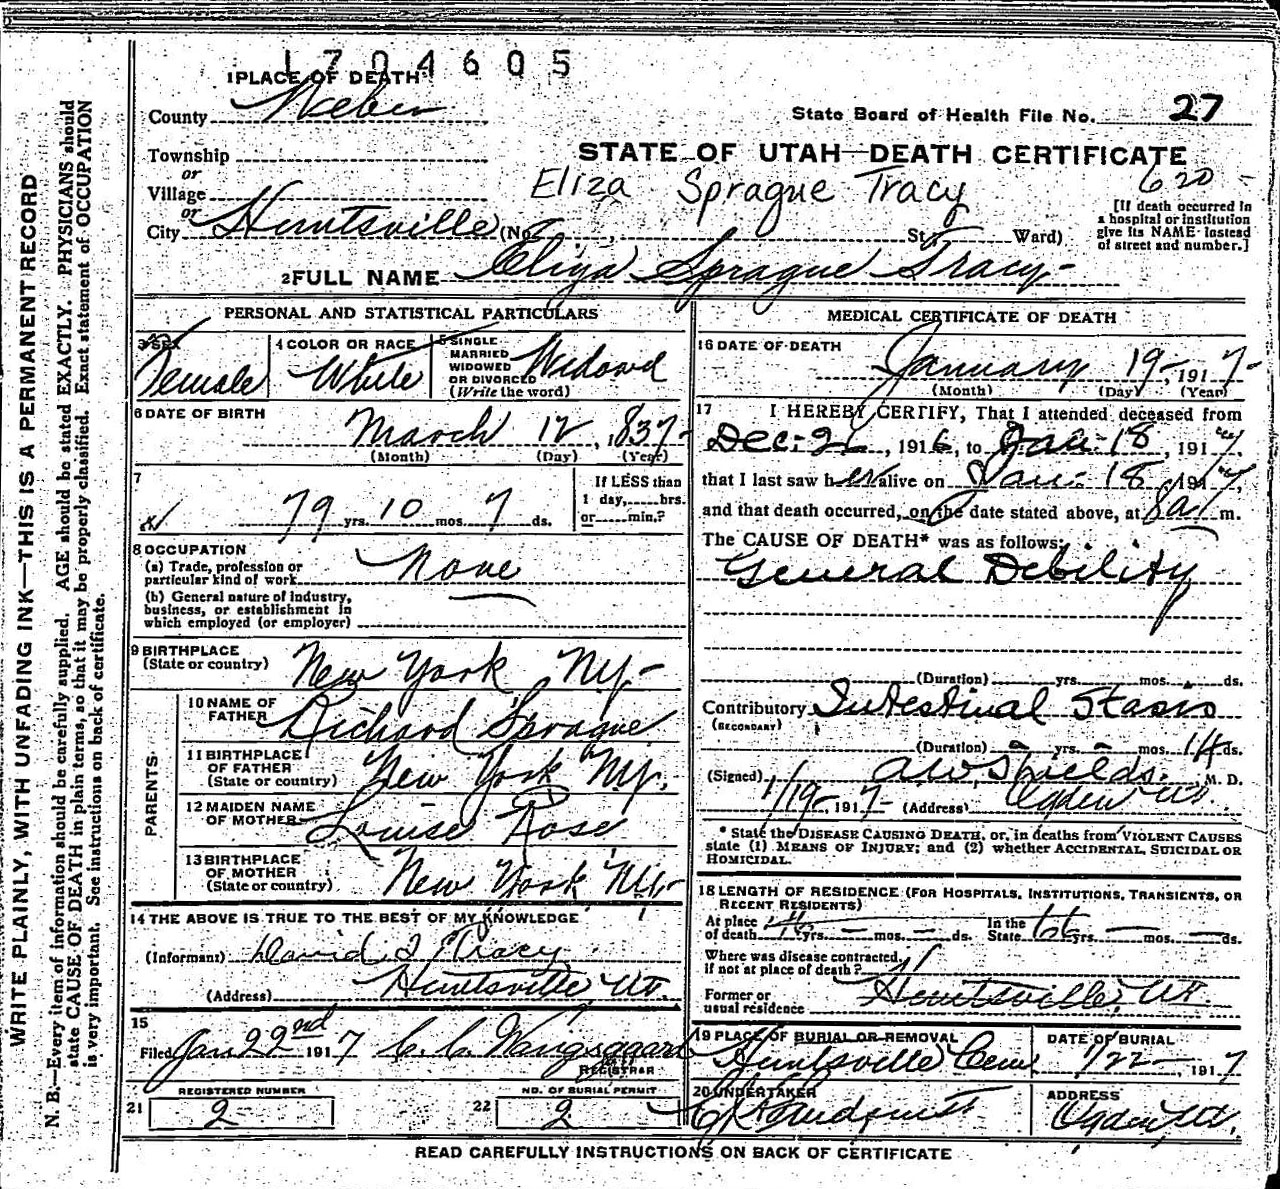 1704605
1 PLACE OF DEATH
County Weber
State Board of Health File No. 27
Township
or
STATE OF UTAH—DEATH CERTIFICATE
Village
or
Eliza Sprague Tracy 620
City Huntsville (No. , St.; Ward)
[If death occurred in
a hospital or institution
give its NAME instead
of street and number.]
2 FULL NAME Eliza Sprague Tracy
PERSONAL AND STATISTICAL PARTICULARS
3 SEX
Female
4 COLOR OR RACE
White
5 SINGLE
MARRIED
WIDOWED
OR DIVORCED
(Write the word)
Widowd
6 DATE OF BIRTH
March 12, 1837
(Month) (Day) (Year)
7
79 yrs. 10 mos. 7 ds.
If LESS than
1 day, hrs.
or min.?
8 OCCUPATION
(a) Trade, profession or
particular kind of work None
(b) General nature of industry,
business, or establishment in
which employed (or employer)
9 BIRTHPLACE
(State or country) New York NY-
PARENTS
10 NAME OF
FATHER Richard Sprague
11 BIRTHPLACE
OF FATHER
(State or country) New York Ny.
12 MAIDEN NAME
OF MOTHER Louise Rose
13 BIRTHPLACE
OF MOTHER
(State or country) New York Ny-
14 THE ABOVE IS TRUE TO THE BEST OF MY KNOWLEDGE
(Informant) David Tracy
(Address) Huntsville Ut.
15
Filed Jan 22nd 1917 C. C. Wangsgaard
REGISTRAR
REGISTERED NUMBER
21 2
NO. OF BURIAL PERMIT
22 2
MEDICAL CERTIFICATE OF DEATH
16 DATE OF DEATH
January 19-, 1917-
(Month) (Day) (Year)
17 I HEREBY CERTIFY, That I attended deceased from
Dec. 26, 1916, to Jan. 18, 1917
that I last saw her alive on Jan. 18, 1917,
and that death occurred, on the date stated above, at 8 a m.
The CAUSE OF DEATH* was as follows:
General Debility
(Duration) yrs. mos. ds.
Contributory Intestinal Stasis
(SECONDARY)
(Duration) - yrs. - mos. 14 ds.
(Signed) A W Shields. M. D.
1/19-, 1917- (Address) Ogden Ut.
* State the DISEASE CAUSING DEATH, or, in deaths from VIOLENT CAUSES
state (1) MEANS OF INJURY; and (2) whether ACCIDENTAL, SUICIDAL OR
HOMICIDAL.
18 LENGTH OF RESIDENCE (FOR HOSPITALS, INSTITUTIONS, TRANSIENTS, OR
RECENT RESIDENTS)
At place
of death yrs. — mos. — ds.
In the
State yrs. — mos. — ds.
Where was disease contracted,
if not at place of death? "
Former or
usual residence Huntsville, Ut.
19 PLACE OF BURIAL OR REMOVAL
Huntsville Cem
DATE OF BURIAL
1/22-, 1917
20 UNDERTAKER
ADDRESS
Ogden, Ut.
READ CAREFULLY INSTRUCTIONS ON BACK OF CERTIFICATE
WRITE PLAINLY, WITH UNFADING INK—THIS IS A PERMANENT RECORD
N. B.—Every item of information should be carefully supplied. AGE should be stated EXACTLY. PHYSICIANS should
state CAUSE OF DEATH in plain terms, so that it may be properly classified. Exact statement of OCCUPATION
is very important. See instructions on back of certificate.